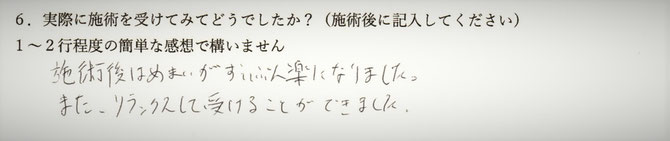 6．実際に施術を受けてみてどうでしたか？（施術後に記入してください）
1～2行程度の簡単な感想で構いません
施術後はめまいがずいぶん楽になりました。
また、リラックスして受けることができました。